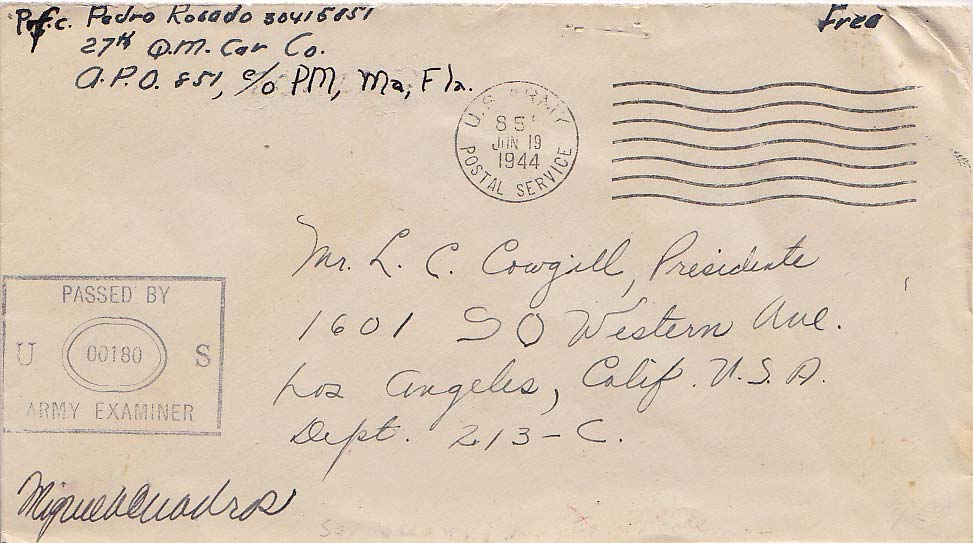 Pfc. Pedro Rosado 30415851
Free
27th Q.M. Car Co.
A.P.O. 851, c/o PM, Ma, Fla.
U.S. ARMY
851
JUN 19
1944
POSTAL SERVICE
Mr. L. C. Cowgill, Presidente
1601 SO Western Ave.
Los Angeles, Calif. U.S.A.
Dept. 213-C.
PASSED BY
U 00180 S
ARMY EXAMINER